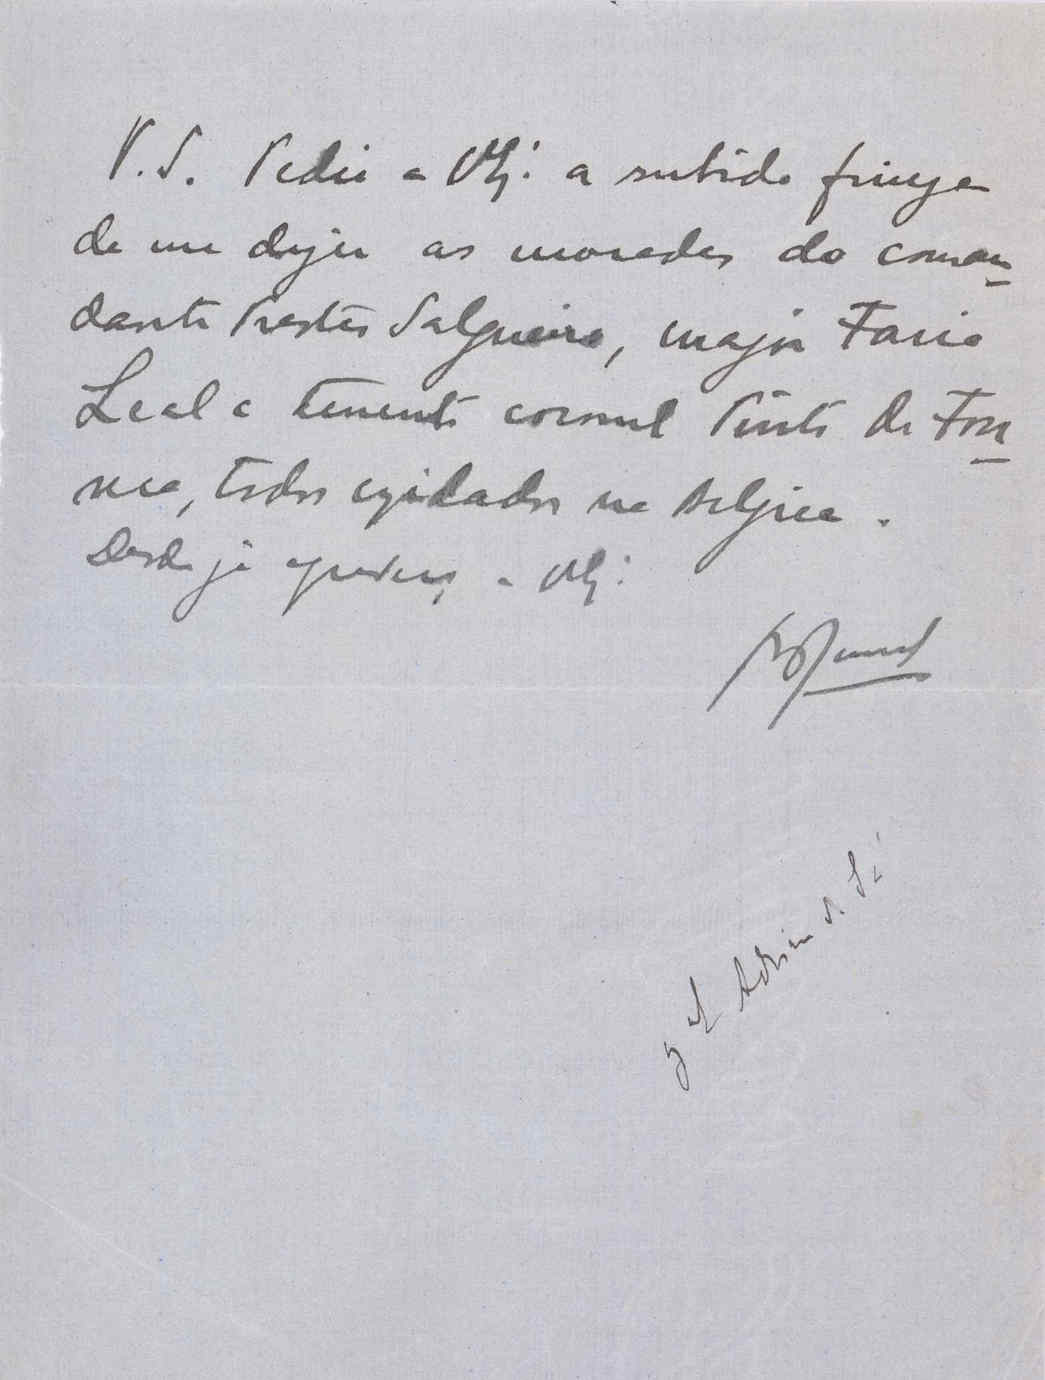 P.S. Pedia a V. Ex.ª a subida fineza
de me dizer as moradas do coman-
dante Prestes Salgueiro, major Faria
Leal e tenente coronel Pinto da Fon-
seca, todos exilados na Belgica.
Desde já agradeço a V. Ex.ª